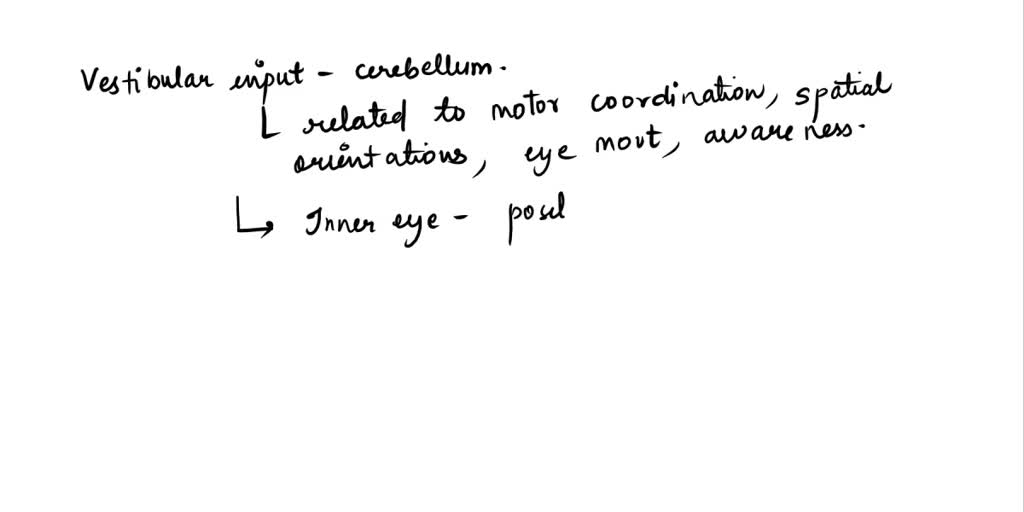 Vestibular input - cerebellum.
related to motor coordination, spatial
orientations, eye movt, awareness.
Inner eye -